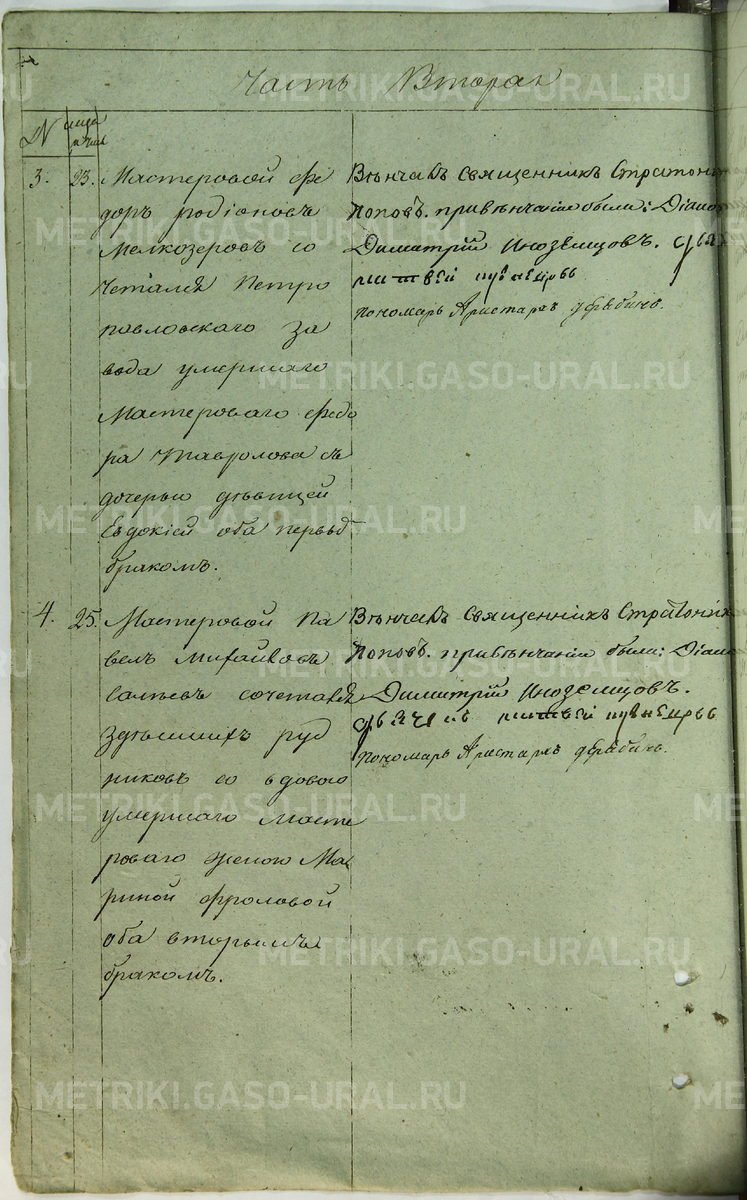 Часть Вторая
№ мца и числ
3. 23. Мастеровой Фе
доръ родіоновъ
Мелкозеровъ со
четался Петро
павловскаго за
вода умершаго
Мастероваго Федо
ра съ
дочерью дѣвицей
Евдокіей оба первы
бракомъ.
Вѣнчалъ священникъ Стратони
Поповъ. привѣнчаніи были: Діако
Димитрій Иноземцовъ.
пономарь Аристархъ
4. 25. Мастеровой Па
велъ Михайловъ
сочетался
Здѣшнихъ руд
никовъ со вдовою
умершаго Масте
роваго женою Ма
риной Фроловой
оба вторымъ
бракомъ.
Вѣнчалъ священникъ Стратоник
Поповъ. привѣнчаніи были: Діако
Димитрій Иноземцовъ.
пономарь Аристархъ
METRIKI.GASO-URAL.RU